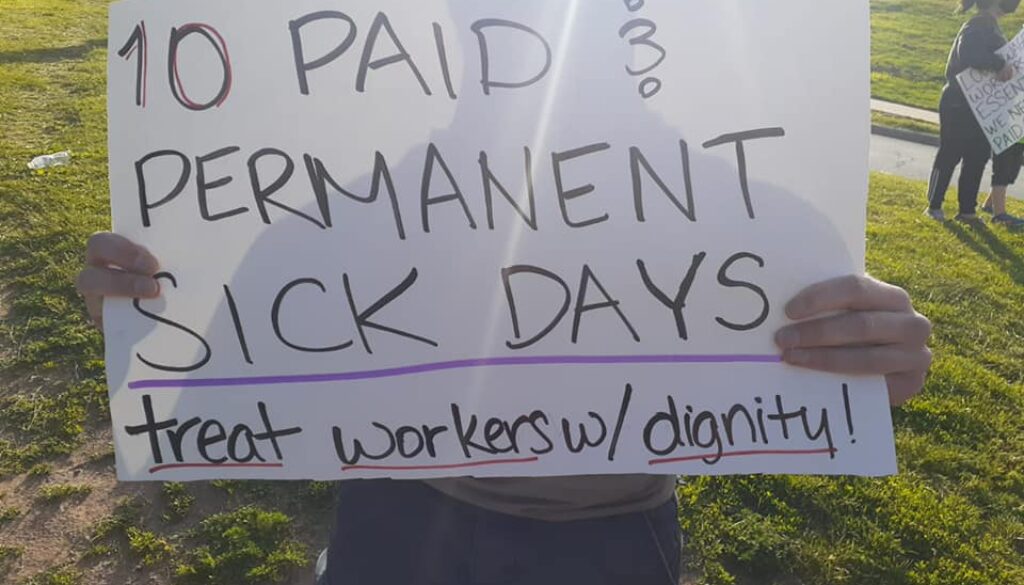 10 PAID &
PERMANENT
SICK DAYS
treat workers w/ dignity!
WORK
ESSEN
WE NE
PAID